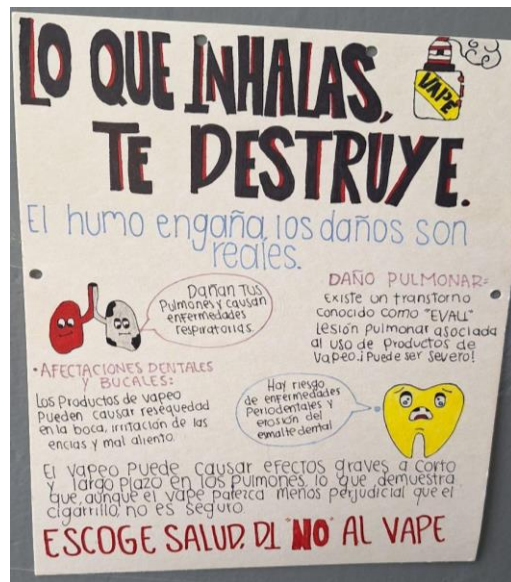 LO QUE INHALAS,
VAPE
TE DESTRUYE.
El humo engaña, los daños son
reales.
Dañan tus
Pulmones y causan
enfermedades
respiratorias.
DAÑO PULMONAR:
Existe un transtorno
conocido como "EVALL"
Lesión pulmonar asociada
al uso de productos de
vapeo. ¡Puede ser severo!
• AFECTACIONES DENTALES
Y BUCALES:
Los Productos de vapeo
Pueden causar resequedad
en la boca, irritación de las
encías y mal aliento
Hay riesgo
de enfermedades
Periodentales y
erosión del
esmalte dental
El vapeo puede causar efectos graves a corto
y largo plazo en los pulmones, lo que demuestra
que, aunque el vape parezca menos perjudicial que el
cigarrillo, no es seguro
ESCOGE SALUD, DI "NO" AL VAPE